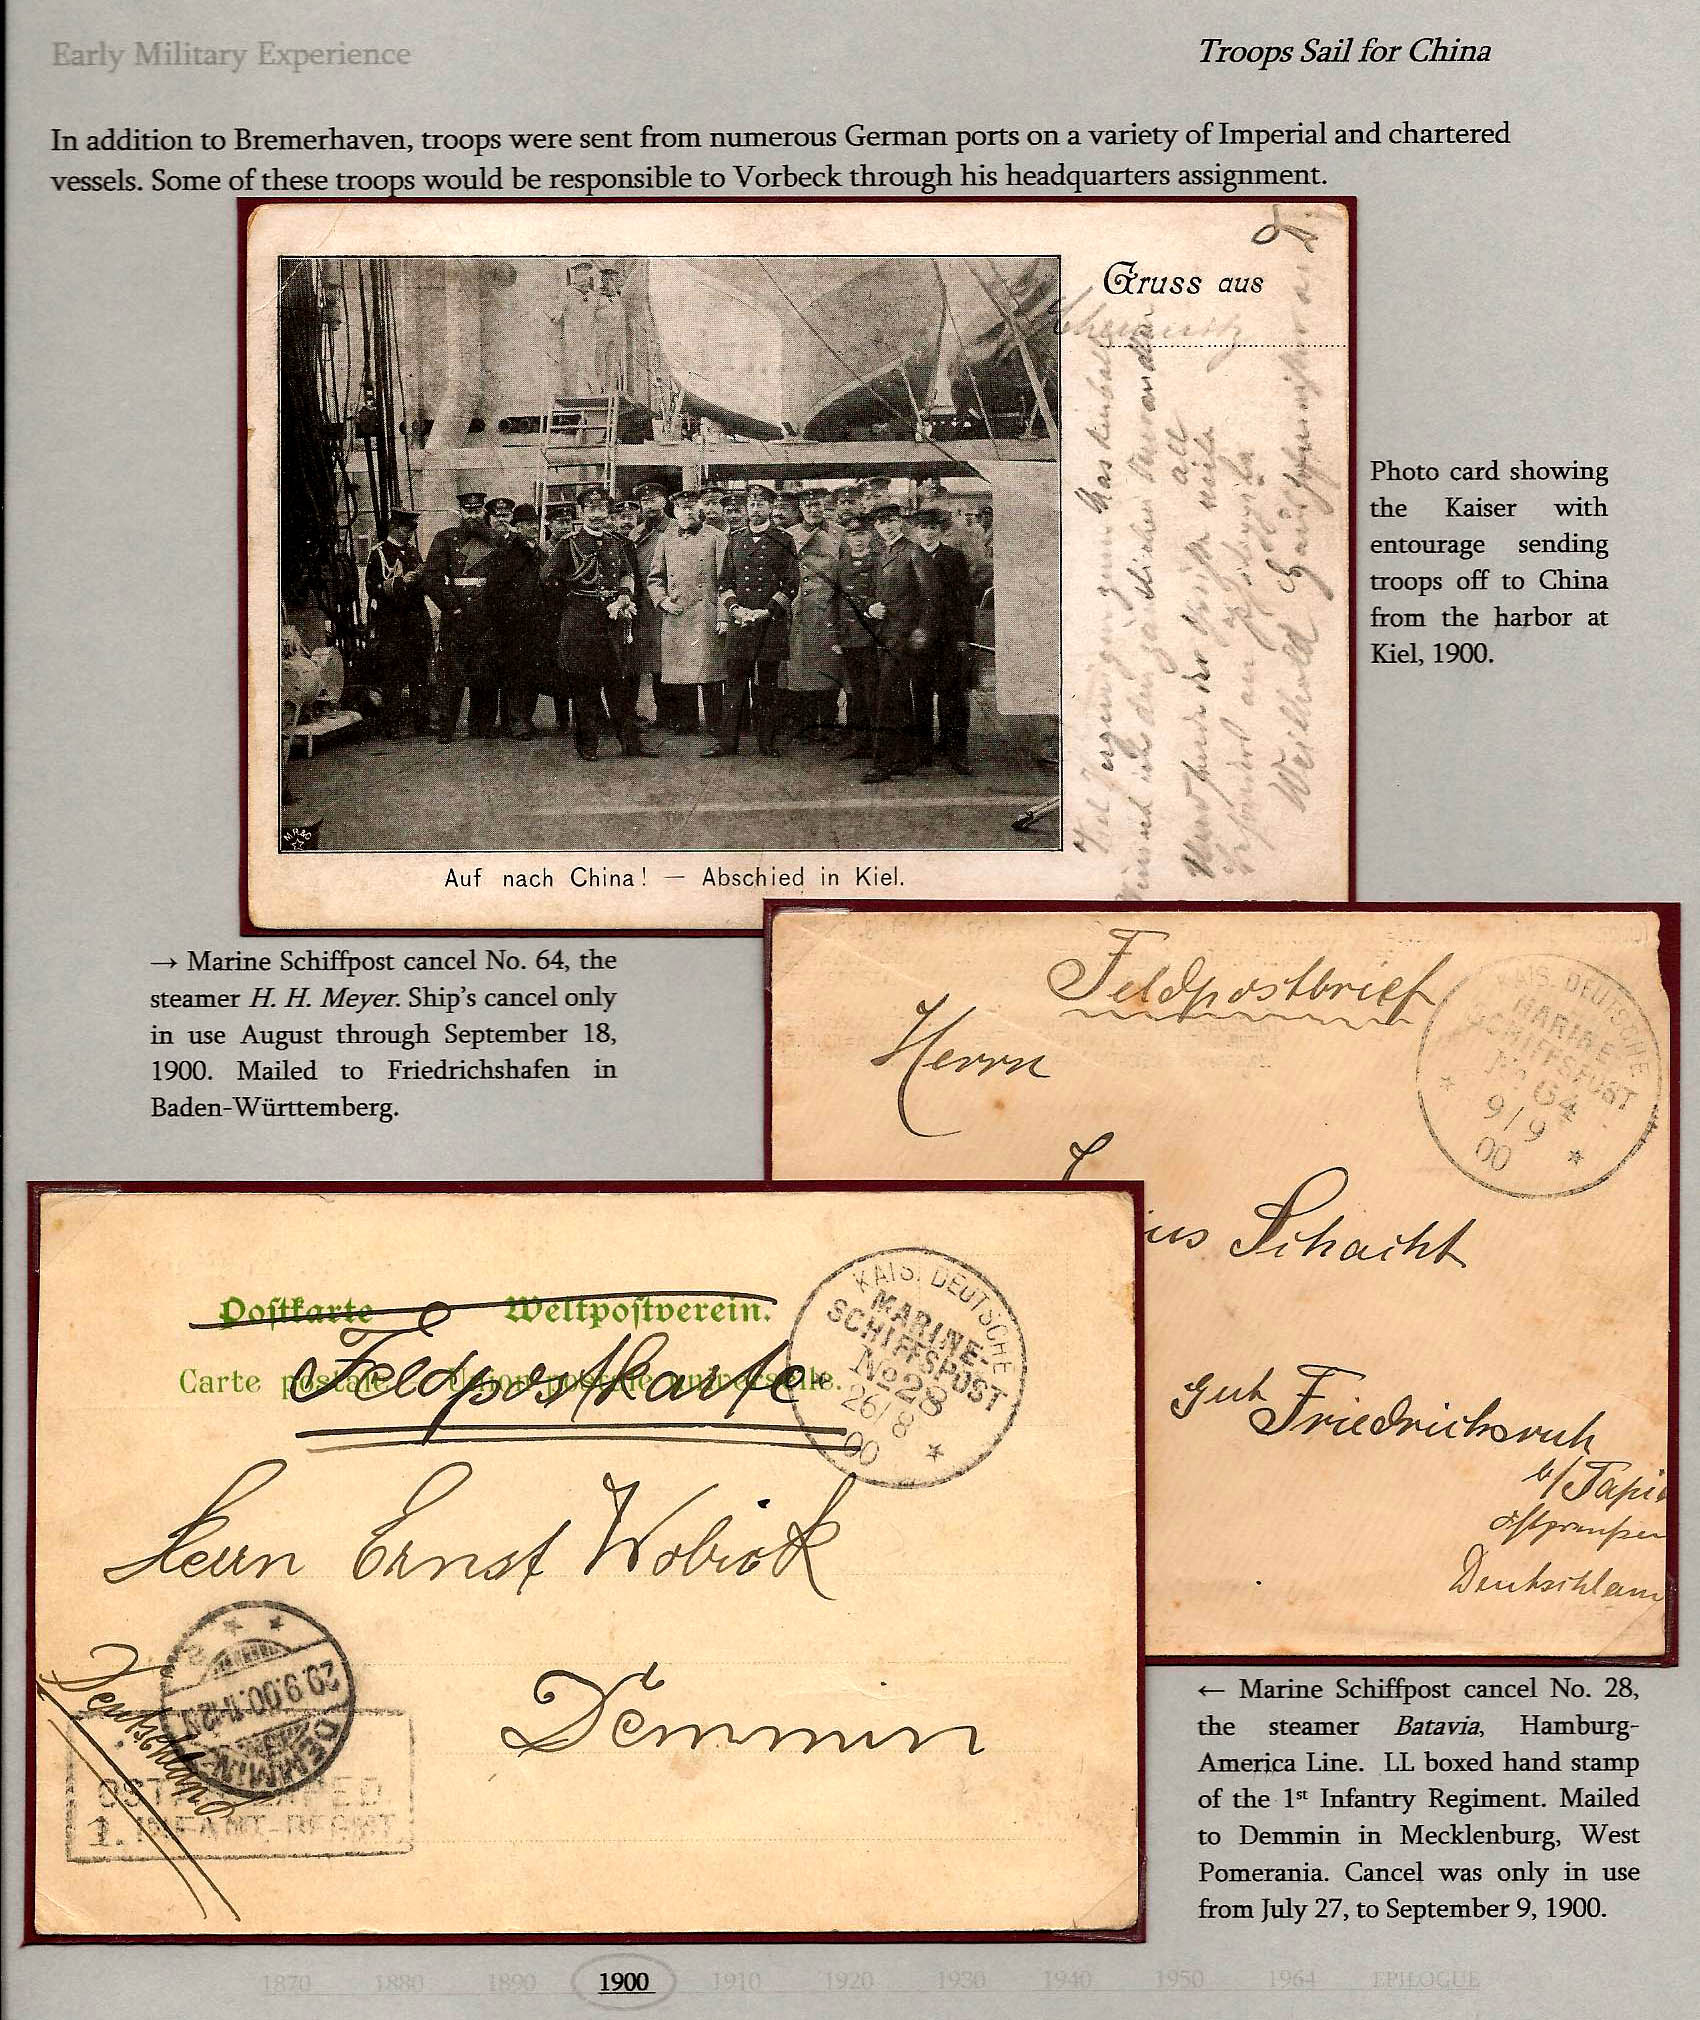 Early Military Experience
Troops Sail for China
In addition to Bremerhaven, troops were sent from numerous German ports on a variety of Imperial and chartered
vessels. Some of these troops would be responsible to Vorbeck through his headquarters assignment.
Gruss aus
Auf nach China! — Abschied in Kiel.
Photo card showing
the Kaiser with
entourage sending
troops off to China
from the harbor at
Kiel, 1900.
→ Marine Schiffpost cancel No. 64, the
steamer H. H. Meyer. Ship's cancel only
in use August through September 18,
1900. Mailed to Friedrichshafen in
Baden-Württemberg.
Feldpostbrief
KAIS. DEUTSCHE
MARINE
SCHIFFSPOST
No 64
9/9
00
Herrn
Schacht
Gut Friedrichsruh
b/Tapi
Ostpreußen
Deutschlan
Postkarte Weltpostverein.
Carte postale Union postale universelle.
Feldpostkarte
KAIS. DEUTSCHE
MARINE-
SCHIFFSPOST
No 28
26/8
00
Herrn Ernst
Demmin
Deutschland
DEMMIN
29.9.00.11-12V
1. INFANT-REGMT
← Marine Schiffpost cancel No. 28,
the steamer Batavia, Hamburg-
America Line. LL boxed hand stamp
of the 1st Infantry Regiment. Mailed
to Demmin in Mecklenburg, West
Pomerania. Cancel was only in use
from July 27, to September 9, 1900.
1870 1880 1890 1900 1910 1920 1930 1940 1950 1964 EPILOGUE